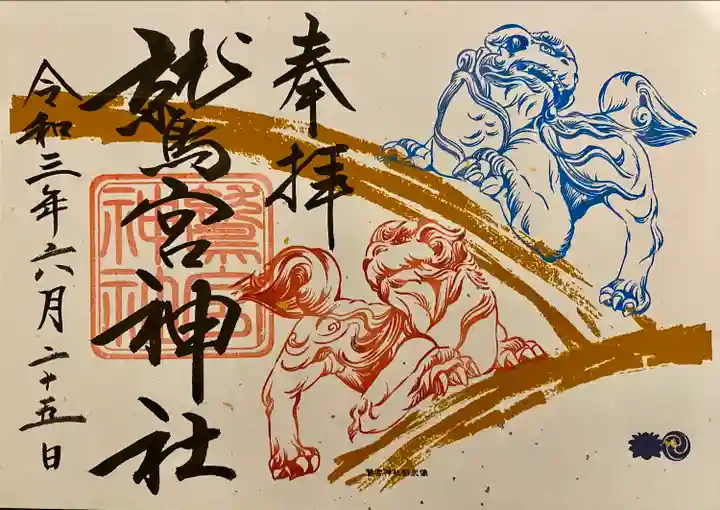 奉拝
鷲宮神社
鷲宮
神社
令和三年六月二十五日
鷲宮神社狛犬像